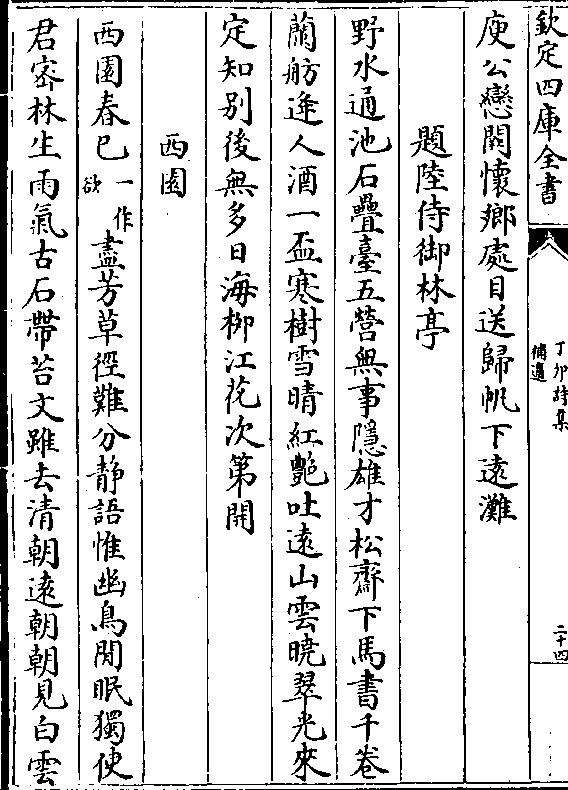 欽定四庫全書
丁卯詩集
補遺
二十四
庾公戀闕懷鄉處目送歸帆下遠灘
題陸侍御林亭
野水通池石疊臺五營無事隱雄才松齋下馬書千卷
蘭舫逢人酒一盃寒樹雪晴紅艷吐遠山雲曉翠光來
定知别後無多日海柳江花次第開
西園
西園春已一作欲盡芳草徑難分静語惟幽鳥閒眠獨使
君宻林生雨氣古石帶苔文雖去清朝遠朝朝見白雲